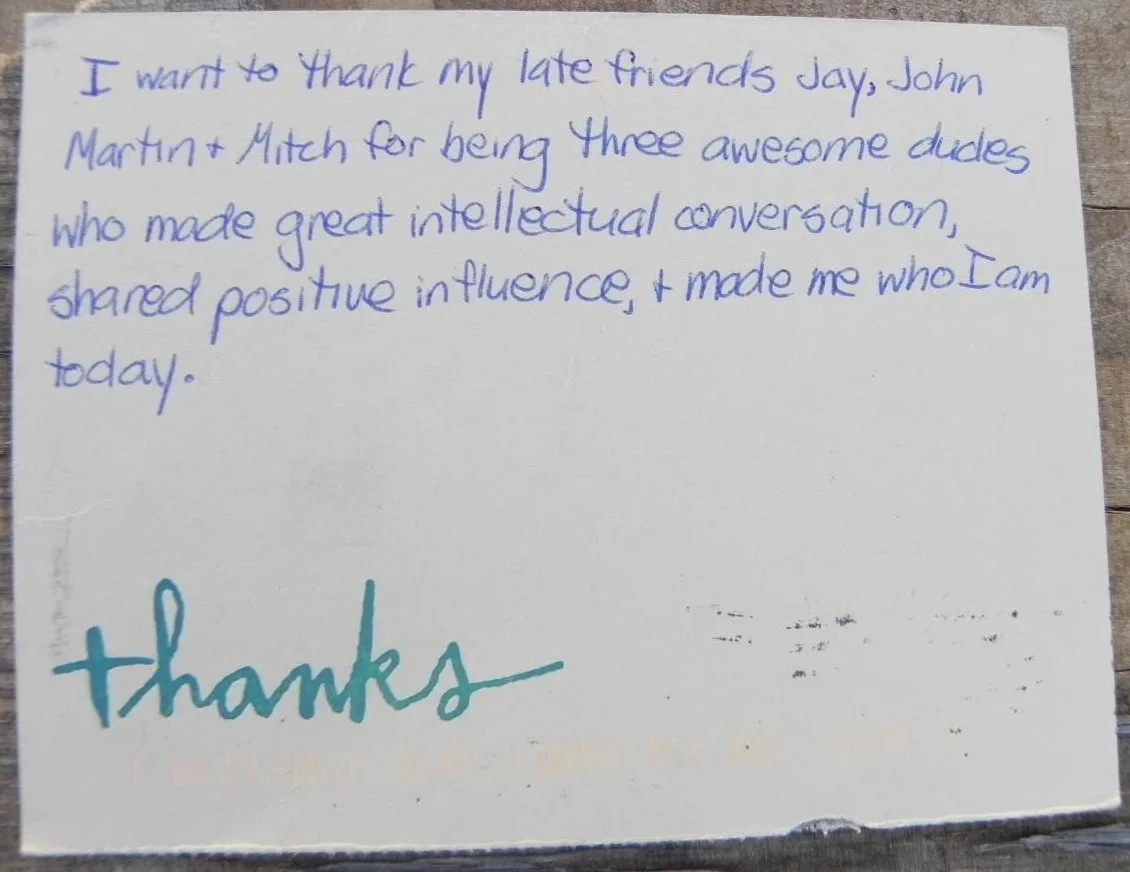 I want to thank my late friends Jay, John
Martin + Mitch for being three awesome dudes
who made great intellectual conversation,
shared positive influence, + made me who I am
today.
thanks